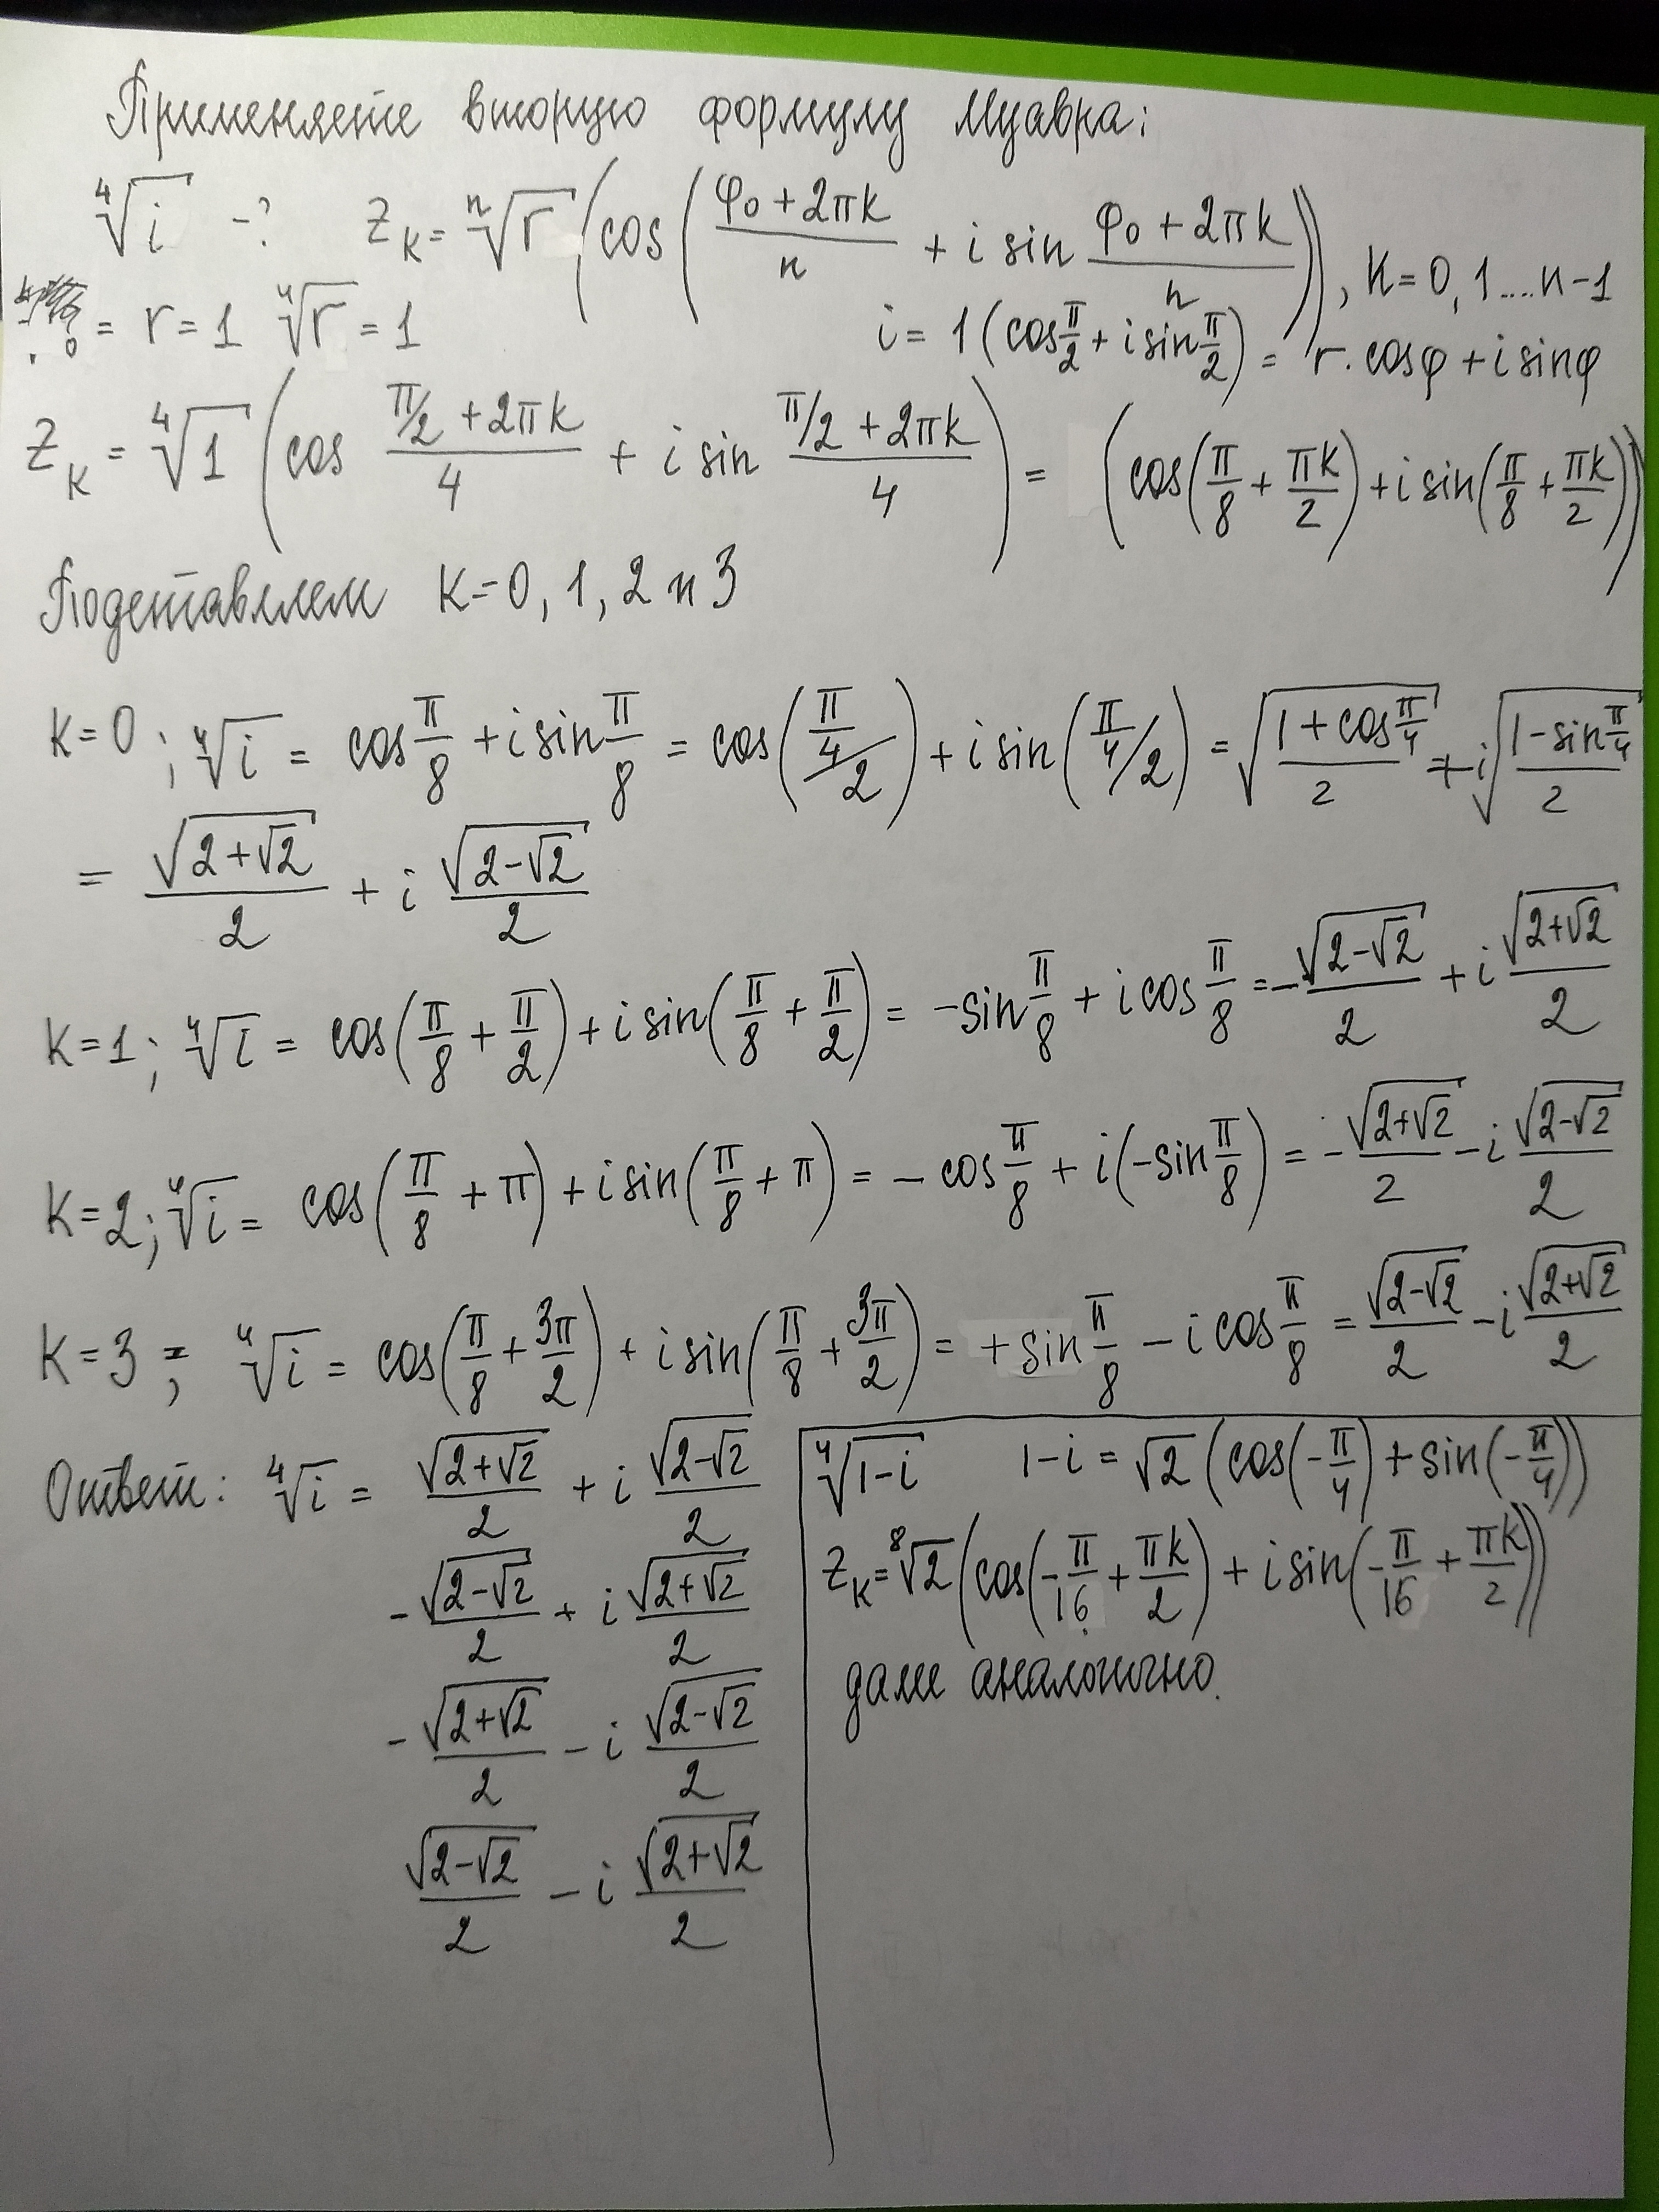 Применяете вторую формулу Муавра:
⁴√i -? Z_K = ⁿ√r (cos (φ₀+2πk / n + i sin φ₀+2πk / n)), K=0,1....n-1
= r=1 ⁴√r = 1 i = 1 (cos π/2 + i sin π/2) = r·cosφ + i sinφ
Z_K = ⁴√1 (cos π/2+2πk / 4 + i sin π/2+2πk / 4) = (cos(π/8 + πk/2) + i sin(π/8 + πk/2))
Подставляем K=0, 1, 2 и 3
K=0; ⁴√i = cos π/8 + i sin π/8 = cos(π/4 / 2) + i sin(π/4 / 2) = √(1+cos π/4 / 2) + i √(1-sin π/4 / 2)
= √(2+√2) / 2 + i √(2-√2) / 2
K=1; ⁴√i = cos(π/8 + π/2) + i sin(π/8 + π/2) = -sin π/8 + i cos π/8 = -√(2-√2) / 2 + i √(2+√2) / 2
K=2; ⁴√i = cos(π/8 + π) + i sin(π/8 + π) = -cos π/8 + i(-sin π/8) = -√(2+√2) / 2 - i √(2-√2) / 2
K=3; ⁴√i = cos(π/8 + 3π/2) + i sin(π/8 + 3π/2) = + sin π/8 - i cos π/8 = √(2-√2) / 2 - i √(2+√2) / 2
Ответ: ⁴√i = √(2+√2) / 2 + i √(2-√2) / 2
-√(2-√2) / 2 + i √(2+√2) / 2
-√(2+√2) / 2 - i √(2-√2) / 2
√(2-√2) / 2 - i √(2+√2) / 2
⁴√(1-i) 1-i = √2 (cos(-π/4) + sin(-π/4))
Z_K = ⁸√2 (cos(-π/16 + πk/2) + i sin(-π/16 + πk/2))
далее аналогично.